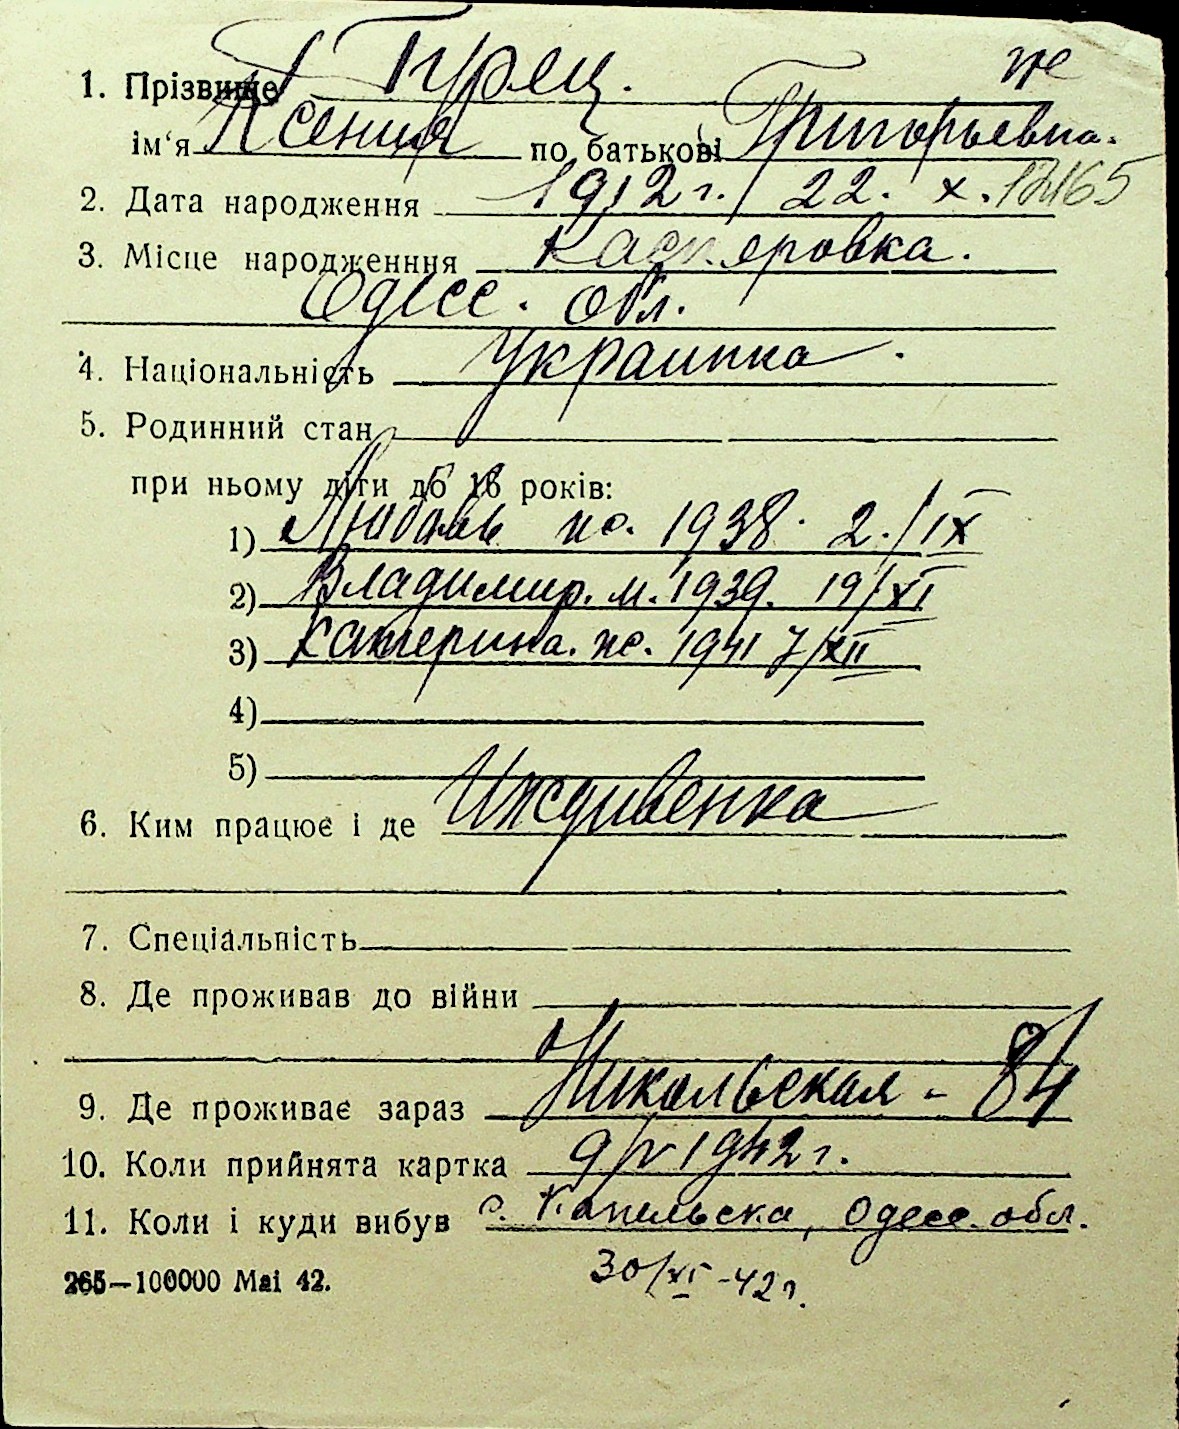 1. Прізвище Гурец. ж
ім'я Ксения по батькові Григорьевна.
2. Дата народження 1912 г. / 22. X. 12165
3. Місце народженння Касперовка.
Одесс. обл.
4. Національність Украинка.
5. Родинний стан
при ньому діти до 16 років:
1) Любовь ж. 1938. 2./IX
2) Владимир. м. 1939. 19/XI
3) Катерина. ж. 1941 7/XII
4)
5)
6. Ким працює і де Иждивенка
7. Спеціальність
8. Де проживав до війни
9. Де проживає зараз Никольская - 84
10. Коли прийнята картка 9/V 1942 г.
11. Коли і куди вибув с. Одесс. обл.
30/XI -42 г.
265—100000 Маі 42.